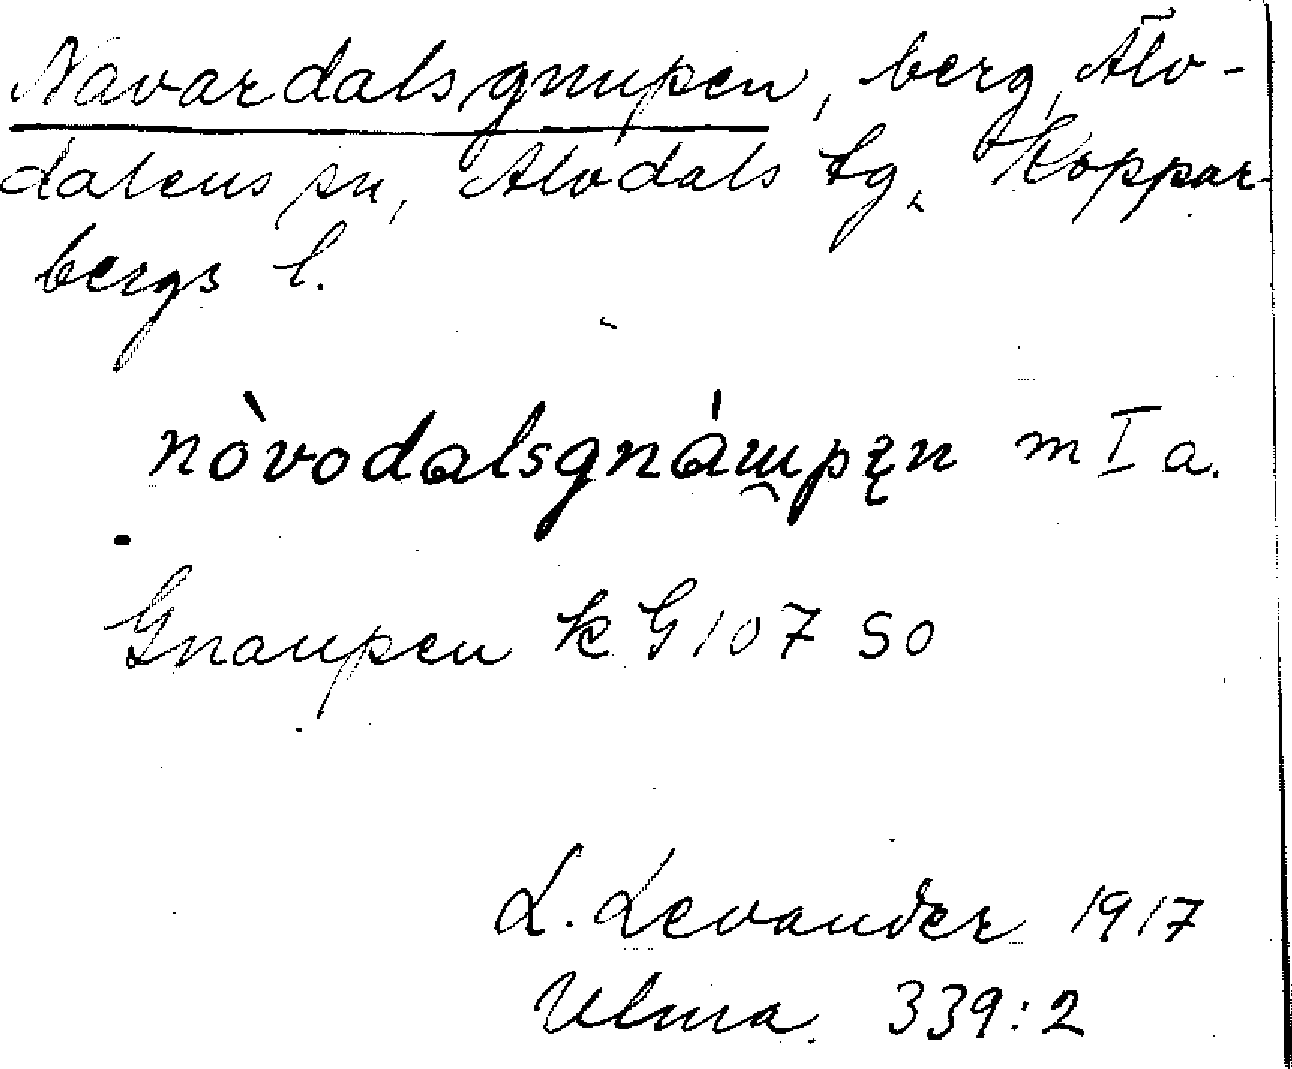 Navardalsgnupen, berg, Älv-
dalens sn, Älvdals tg, Koppar-
bergs l.
nòvodalsgnáɯpęn m I a.
Gnaupen k G 107 SO
L. Levander 1917
Ulma 339:2